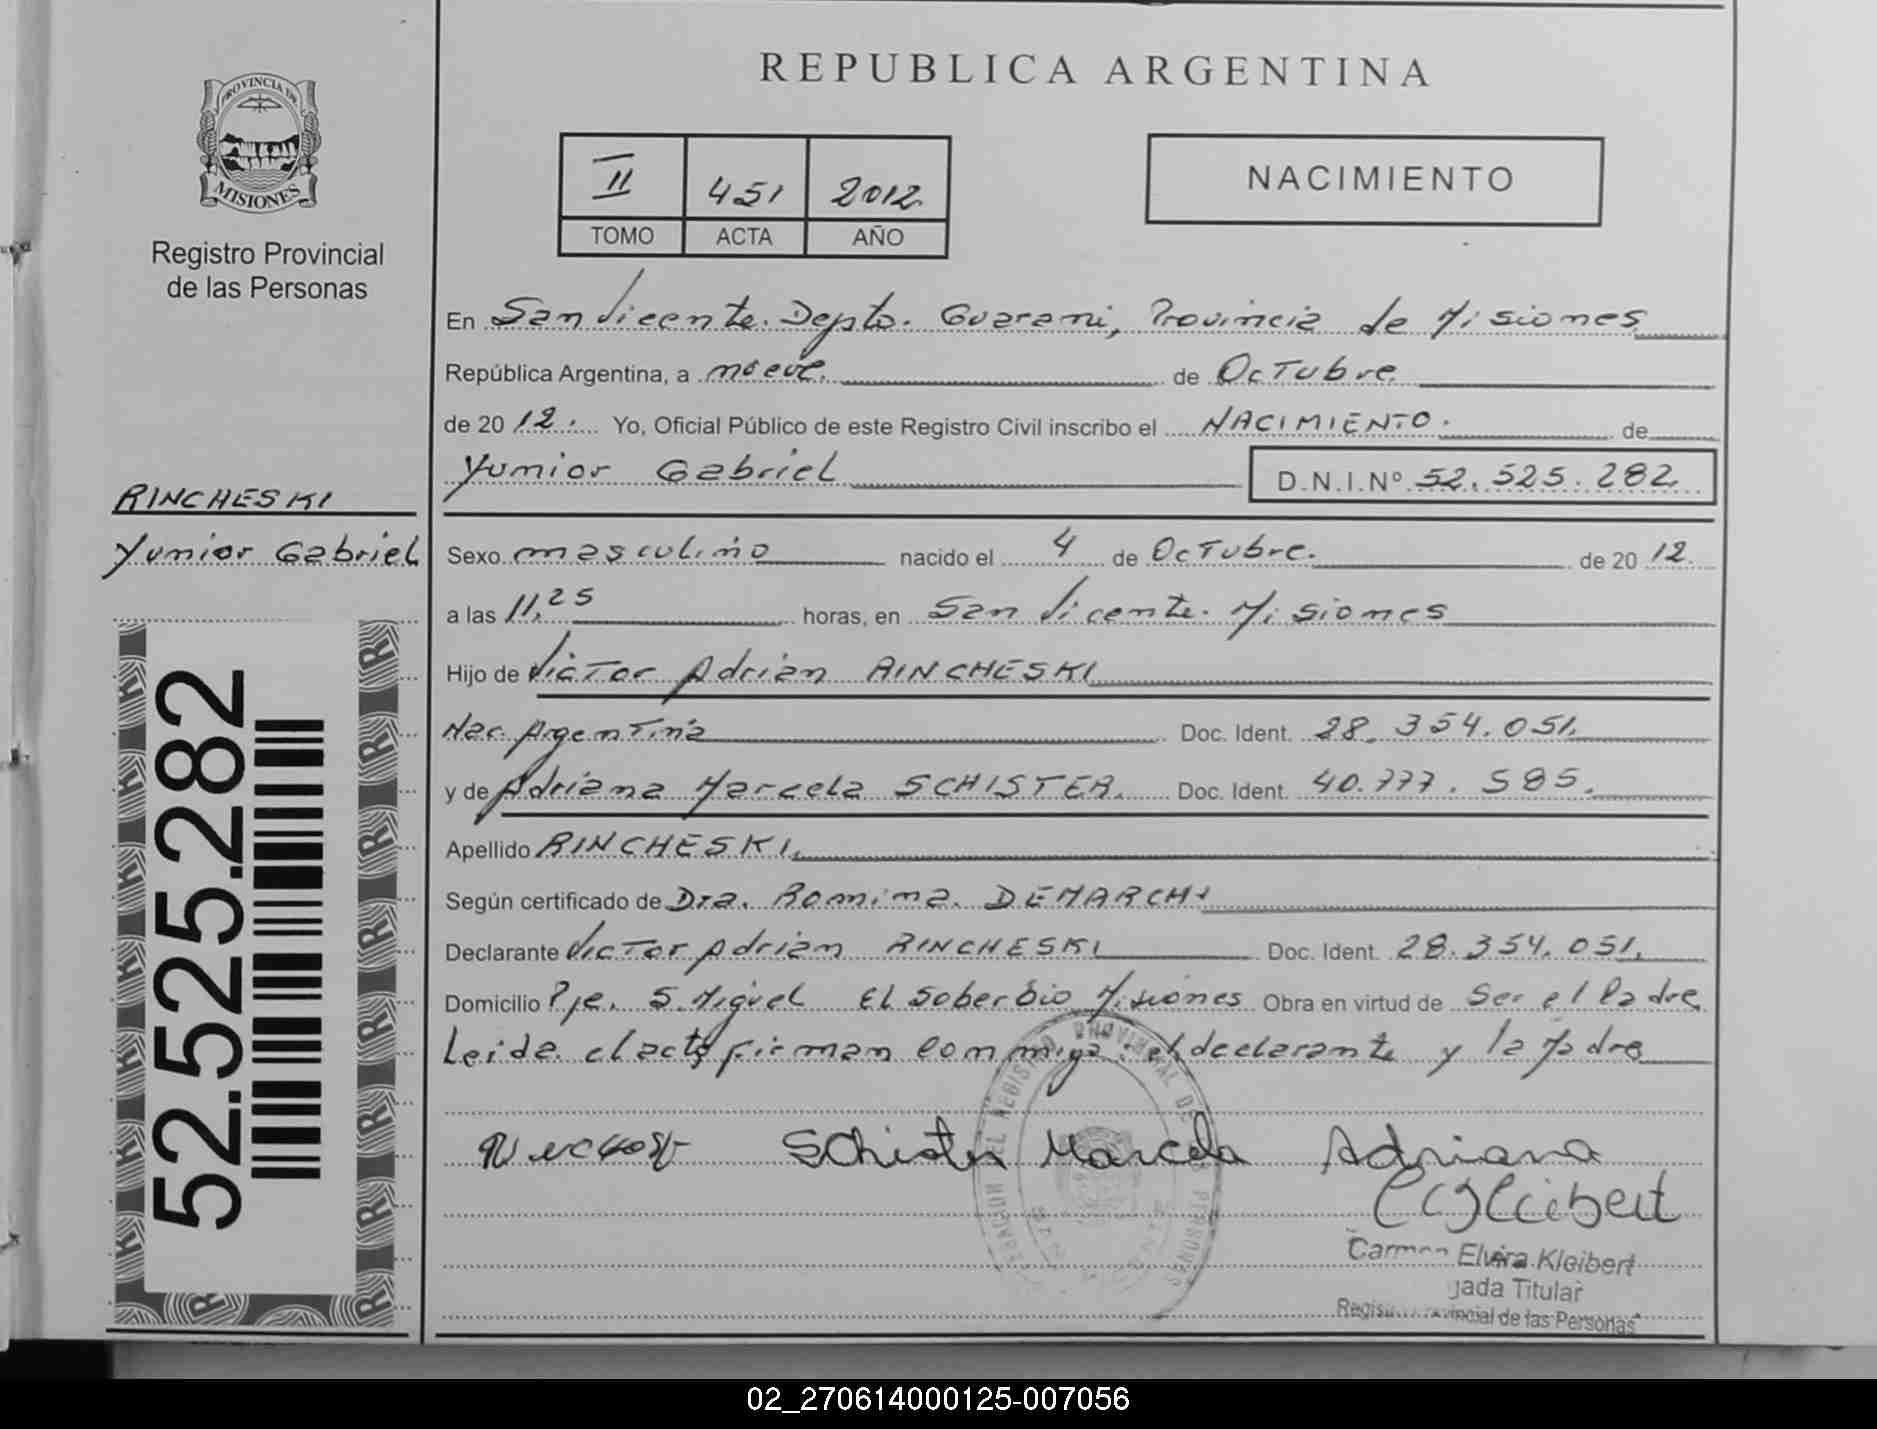 PROVINCIA DE
MISIONES
Registro Provincial
de las Personas
RINCHESKI
Yunior Gabriel
52.525.282
REPUBLICA ARGENTINA
II 451 2012
TOMO ACTA AÑO
NACIMIENTO
En San Vicente. Depto. Guarani, Provincia de Misiones
República Argentina, a nueve. de Octubre
de 20 12. Yo, Oficial Público de este Registro Civil inscribo el NACIMIENTO. de
Yunior Gabriel D.N.I.Nº 52.525.282
Sexo masculino nacido el 4 de Octubre. de 20 12.
a las 11,25 horas, en San Vicente. Misiones
Hijo de Victor Adrian RINCHESKI
Nac. Argentina Doc. Ident. 28.354.051.
y de Adriana Marcela SCHISTER. Doc. Ident. 40.777.585.
Apellido RINCHESKI.
Según certificado de Dra. Romina DEMARCHI
Declarante Victor Adrian RINCHESKI Doc. Ident. 28.354.051.
Domicilio Pje. S. Miguel El Soberbio Misiones Obra en virtud de Ser el Padre
Leida el acta firman conmigo: el declarante y la Madre
Schister Marcela Adriana
Carmen Elvira Kleibert
Titular
Provincial de las Personas
02_270614000125-007056